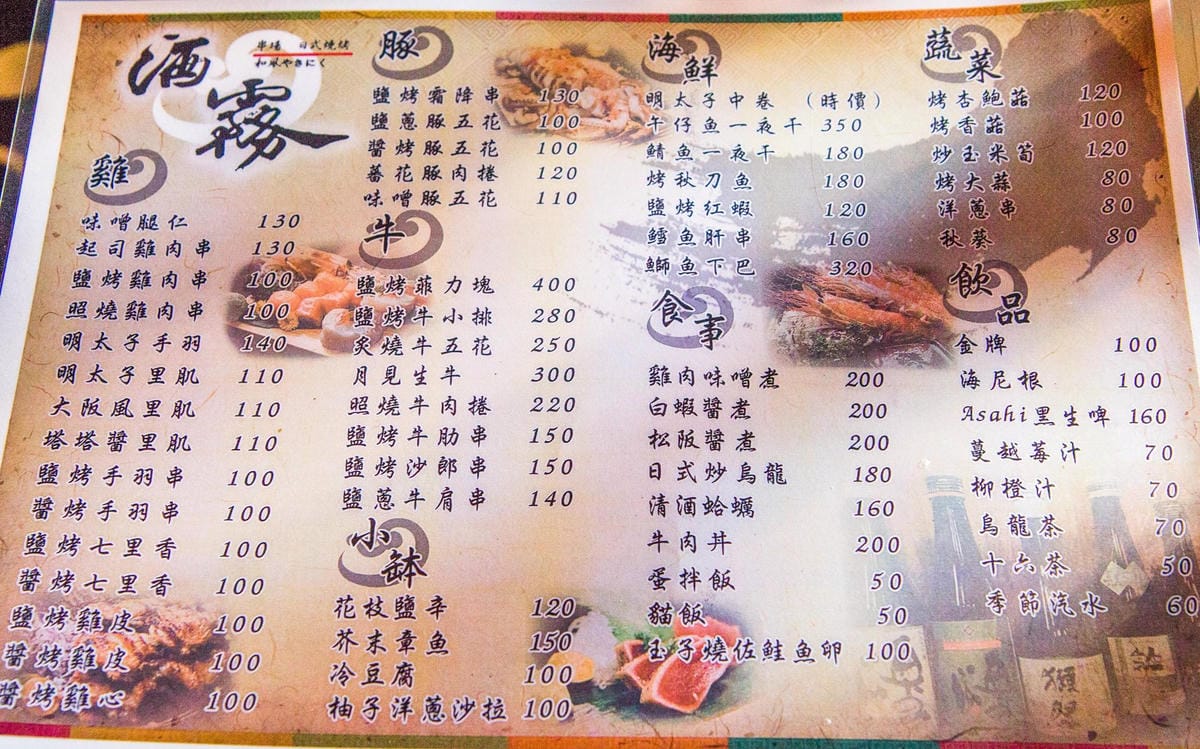 酒霧
串場 日式燒烤
和風やきにく
雞
味噌腿仁 130
起司雞肉串 130
鹽烤雞肉串 100
照燒雞肉串 100
明太子手羽 140
明太子里肌 110
大阪風里肌 110
塔塔醬里肌 110
鹽烤手羽串 100
醬烤手羽串 100
鹽烤七里香 100
醬烤七里香 100
鹽烤雞皮 100
醬烤雞皮 100
醬烤雞心 100
豚
鹽烤霜降串 130
鹽蔥豚五花 100
醬烤豚五花 100
蕃花豚肉捲 120
味噌豚五花 110
牛
鹽烤菲力塊 400
鹽烤牛小排 280
炙燒牛五花 250
月見生牛 300
照燒牛肉捲 220
鹽烤牛肋串 150
鹽烤沙郎串 150
鹽蔥牛肩串 140
小缽
花枝鹽辛 120
芥末章魚 150
冷豆腐 100
柚子洋蔥沙拉 100
海鮮
明太子中卷 (時價)
午仔魚一夜干 350
鯖魚一夜干 180
烤秋刀魚 180
鹽烤紅蝦 120
鱈魚肝串 160
鰤魚下巴 320
食事
雞肉味噌煮 200
白蝦醬煮 200
松阪醬煮 200
日式炒烏龍 180
清酒蛤蠣 160
牛肉丼 200
蛋拌飯 50
貓飯 50
玉子燒佐鮭魚卵 100
蔬菜
烤杏鮑菇 120
烤香菇 100
炒玉米筍 120
烤大蒜 80
洋蔥串 80
秋葵 80
飲品
金牌 100
海尼根 100
Asahi黑生啤 160
蔓越莓汁 70
柳橙汁 70
烏龍茶 70
十六茶 50
季節汽水 60
獺祭